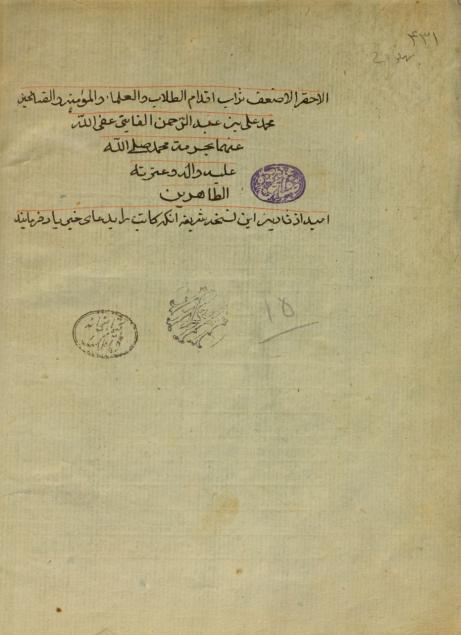 ۴۳۱
الاحقر الاضعف تراب اقدام الطلاب والعلماء والمؤمنین والصالحین
محمد علی بن عبد الرحمن عفی الله
عنهما بحرمة محمد صلی الله
علیه واله وعترته
الطاهرین
امید از این نسخه شریفه انکه کاتب را بدعای خیر یاد فرمایند
۱۵